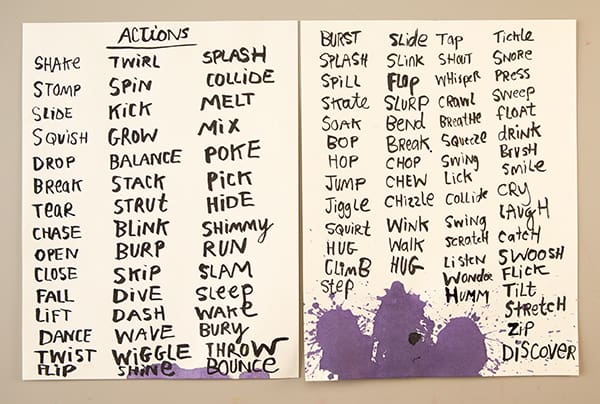 ACTIONS
SHAKE
STOMP
SLIDE
SQUISH
DROP
BREAK
TEAR
CHASE
OPEN
CLOSE
FALL
LIFT
DANCE
TWIST
FLIP
TWIRL
SPIN
KICK
GROW
BALANCE
STACK
STRUT
BLINK
BURP
SKIP
DIVE
DASH
WAVE
WIGGLE
SHINE
SPLASH
COLLIDE
MELT
MiX
POKE
PiCK
HiDE
SHiMMY
RUN
SLAM
SLeeP
WAKe
BURY
THROW
BOUNCE
BURST
SPLASH
SPiLL
SKate
SOAK
BOP
HOP
JUMP
Jiggle
SQUiRT
HUG
CLiMB
Step
SLide
SLiNK
FLOP
SLURP
Bend
Break
CHOP
CHEW
CHizzle
Wink
Walk
HUG
Tap
SHOUT
WHisper
CRAWL
BReatHe
SQueeze
Swing
Lick
Collide
Swing
SCRatcH
Listen
Wonder
HUMM
Tickle
SNORe
PRESS
Sweep
FLOat
drink
BRUSH
Smile
CRy
LAUGH
CatcH
SWOOSH
FLiCK
TiLT
StRetcH
ZiP
DiSCOVeR